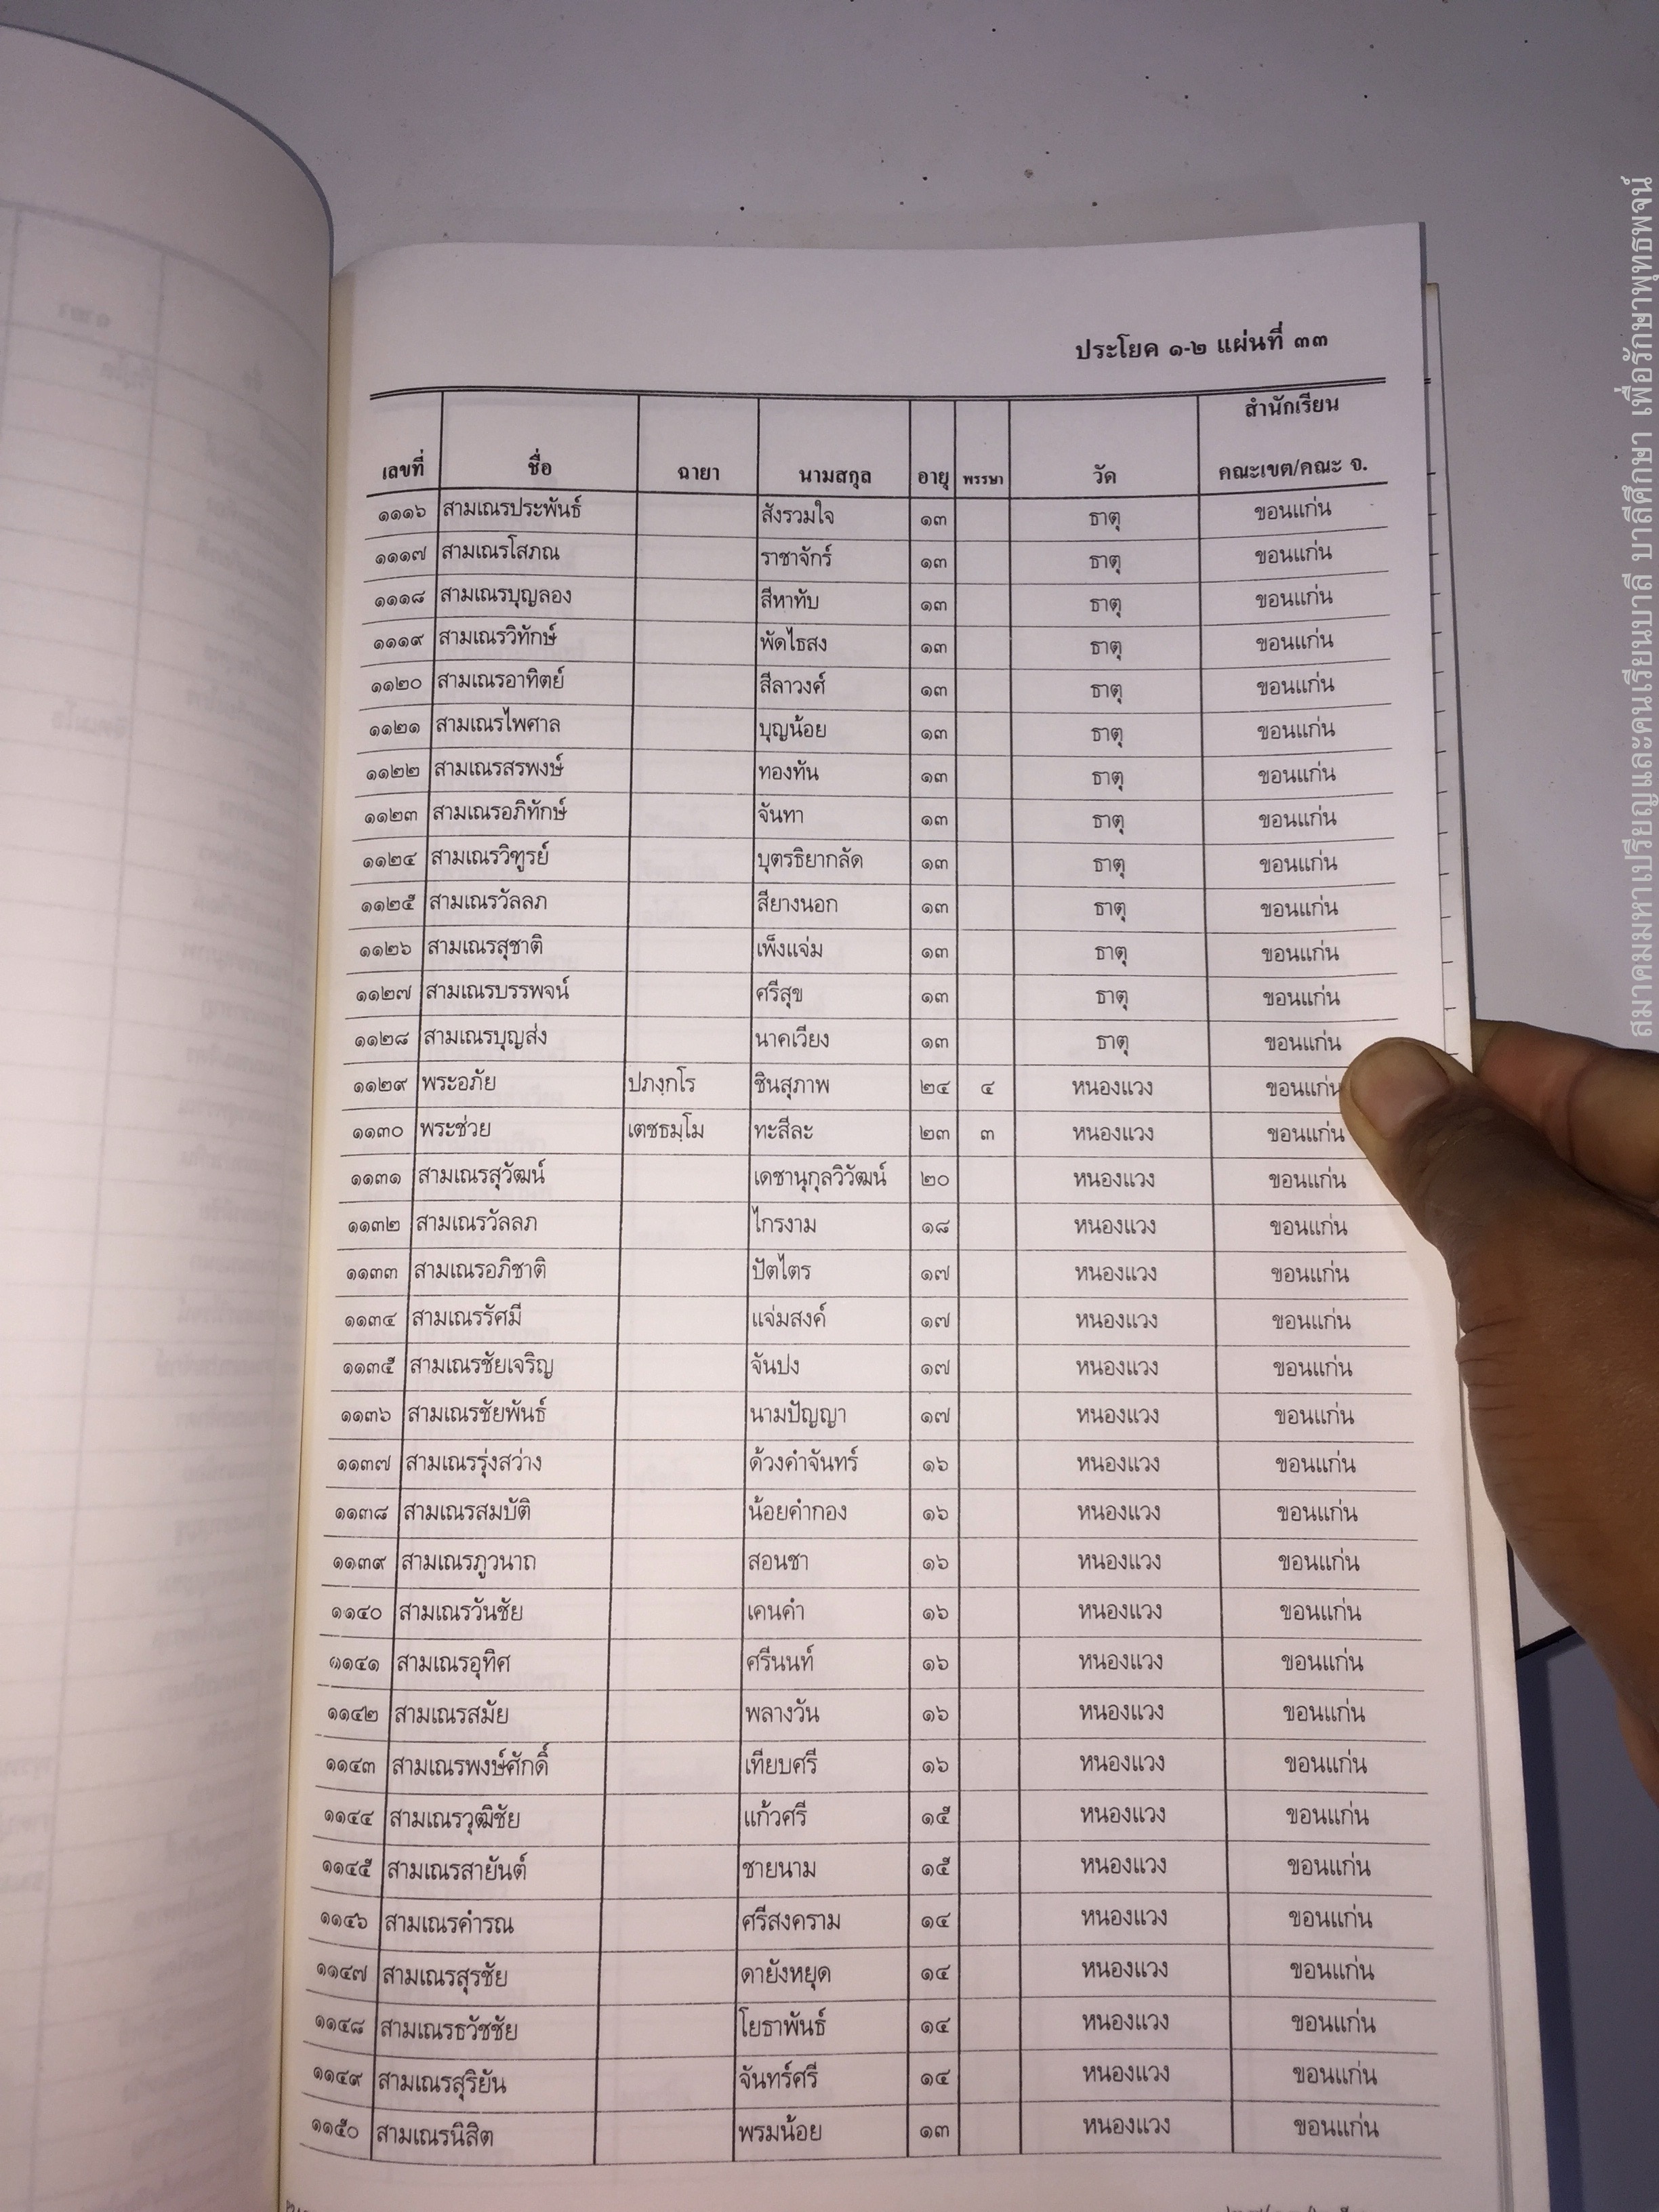 ประโยค ๑-๒ แผ่นที่ ๓๓
เลขที่ ชื่อ ฉายา นามสกุล อายุ พรรษา วัด สำนักเรียน คณะเขต/คณะ จ.
๑๑๑๖ สามเณรประพันธ์ สังรวมใจ ๑๓ ธาตุ ขอนแก่น
๑๑๑๗ สามเณรโสภณ ราชาจักร์ ๑๓ ธาตุ ขอนแก่น
๑๑๑๘ สามเณรบุญลอง สีหาทับ ๑๓ ธาตุ ขอนแก่น
๑๑๑๙ สามเณรวิทักษ์ พัดไธสง ๑๓ ธาตุ ขอนแก่น
๑๑๒๐ สามเณรอาทิตย์ สีลาวงศ์ ๑๓ ธาตุ ขอนแก่น
๑๑๒๑ สามเณรไพศาล บุญน้อย ๑๓ ธาตุ ขอนแก่น
๑๑๒๒ สามเณรสรพงษ์ ทองทัน ๑๓ ธาตุ ขอนแก่น
๑๑๒๓ สามเณรอภิทักษ์ จันทา ๑๓ ธาตุ ขอนแก่น
๑๑๒๔ สามเณรวิฑูรย์ บุตรธิยากลัด ๑๓ ธาตุ ขอนแก่น
๑๑๒๕ สามเณรวัลลภ สียางนอก ๑๓ ธาตุ ขอนแก่น
๑๑๒๖ สามเณรสุชาติ เพ็งแจ่ม ๑๓ ธาตุ ขอนแก่น
๑๑๒๗ สามเณรบรรพจน์ ศรีสุข ๑๓ ธาตุ ขอนแก่น
๑๑๒๘ สามเณรบุญส่ง นาคเวียง ๑๓ ธาตุ ขอนแก่น
๑๑๒๙ พระอภัย ปภงฺกโร ชินสุภาพ ๒๔ ๔ หนองแวง ขอนแก่น
๑๑๓๐ พระช่วย เตชธมฺโม ทะสีละ ๒๓ ๓ หนองแวง ขอนแก่น
๑๑๓๑ สามเณรสุวัฒน์ เดชานุกุลวิวัฒน์ ๒๐ หนองแวง ขอนแก่น
๑๑๓๒ สามเณรวัลลภ ไกรงาม ๑๘ หนองแวง ขอนแก่น
๑๑๓๓ สามเณรอภิชาติ ปัตไตร ๑๗ หนองแวง ขอนแก่น
๑๑๓๔ สามเณรรัศมี แจ่มสงค์ ๑๗ หนองแวง ขอนแก่น
๑๑๓๕ สามเณรชัยเจริญ จันปง ๑๗ หนองแวง ขอนแก่น
๑๑๓๖ สามเณรชัยพันธ์ นามปัญญา ๑๗ หนองแวง ขอนแก่น
๑๑๓๗ สามเณรรุ่งสว่าง ด้วงคำจันทร์ ๑๖ หนองแวง ขอนแก่น
๑๑๓๘ สามเณรสมบัติ น้อยคำกอง ๑๖ หนองแวง ขอนแก่น
๑๑๓๙ สามเณรภูวนาถ สอนชา ๑๖ หนองแวง ขอนแก่น
๑๑๔๐ สามเณรวันชัย เคนคำ ๑๖ หนองแวง ขอนแก่น
๑๑๔๑ สามเณรอุทิศ ศรีนนท์ ๑๖ หนองแวง ขอนแก่น
๑๑๔๒ สามเณรสมัย พลางวัน ๑๖ หนองแวง ขอนแก่น
๑๑๔๓ สามเณรพงษ์ศักดิ์ เทียบศรี ๑๖ หนองแวง ขอนแก่น
๑๑๔๔ สามเณรวุฒิชัย แก้วศรี ๑๕ หนองแวง ขอนแก่น
๑๑๔๕ สามเณรสายันต์ ชายนาม ๑๕ หนองแวง ขอนแก่น
๑๑๔๖ สามเณรคำรณ ศรีสงคราม ๑๔ หนองแวง ขอนแก่น
๑๑๔๗ สามเณรสุรชัย ดายังหยุด ๑๔ หนองแวง ขอนแก่น
๑๑๔๘ สามเณรธวัชชัย โยธาพันธ์ ๑๔ หนองแวง ขอนแก่น
๑๑๔๙ สามเณรสุริยัน จันทร์ศรี ๑๔ หนองแวง ขอนแก่น
๑๑๕๐ สามเณรนิสิต พรมน้อย ๑๓ หนองแวง ขอนแก่น
สมาคมมหาเปรียญและคนเรียนบาลี บาลีศึกษา เพื่อรักษาพุทธพจน์